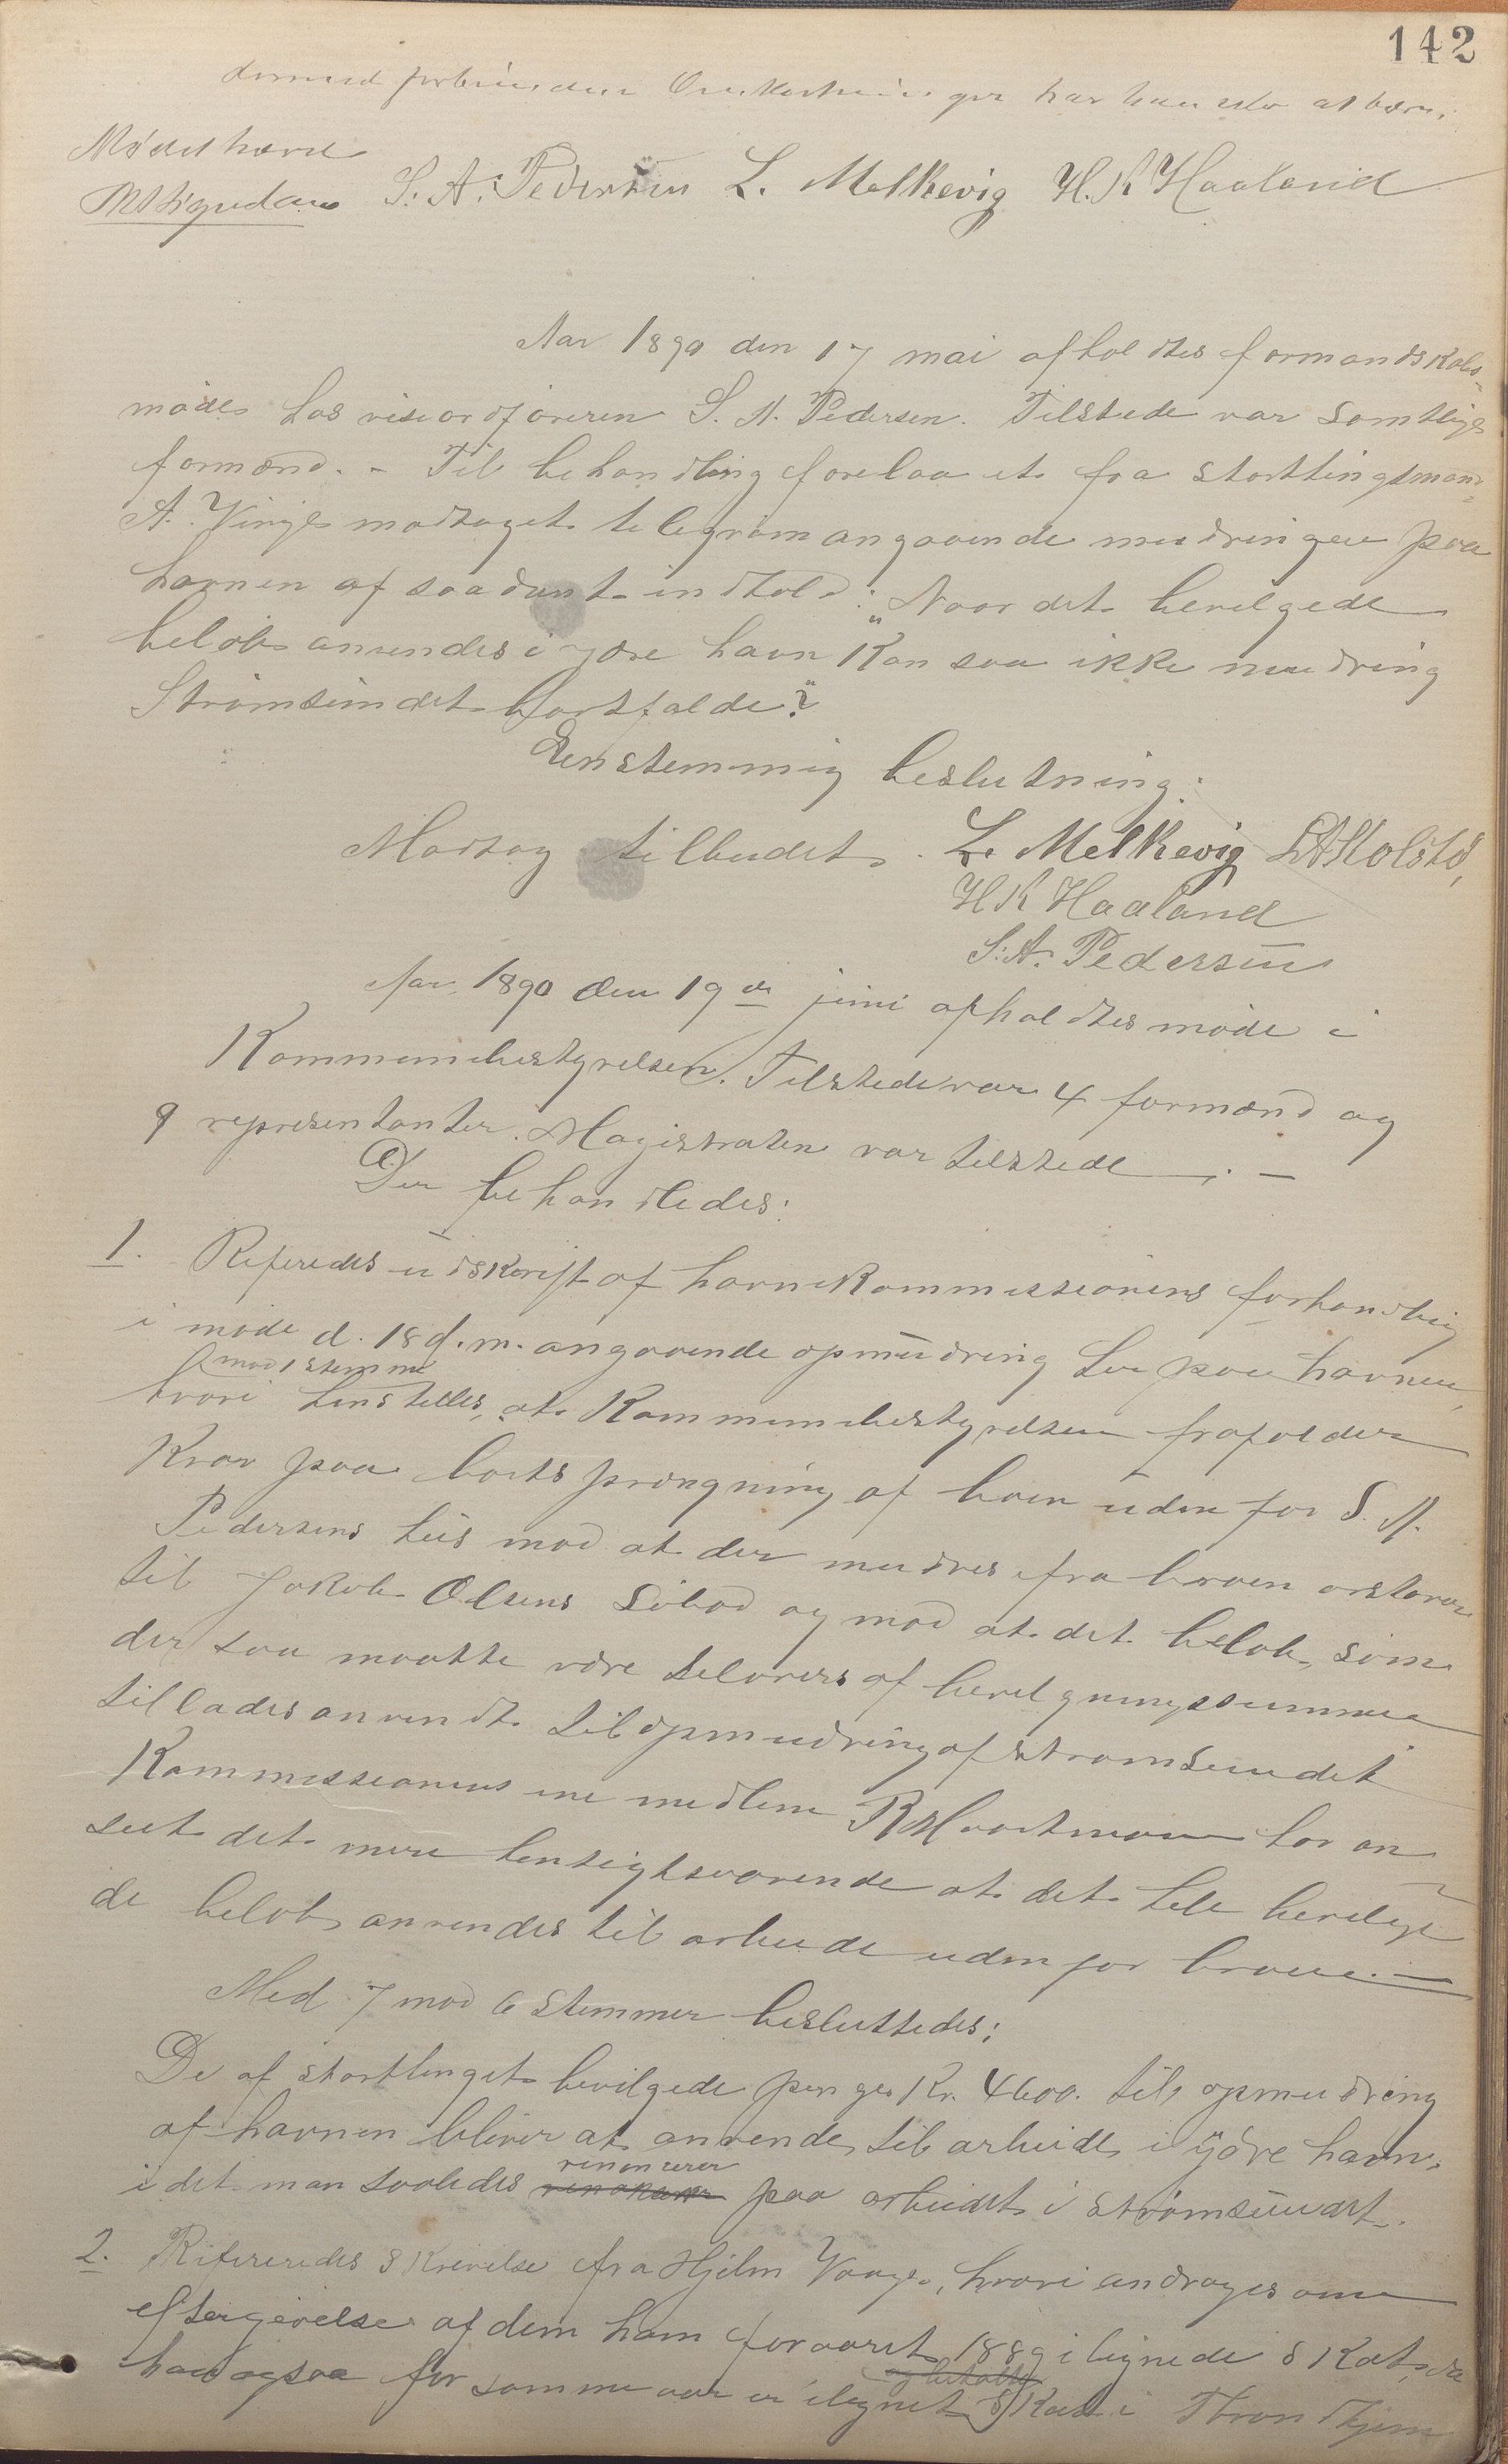 142
dermed forbundne Omkostninger har han selv at bære.
Mødet hævet
S. A. Pedersen L. Melkevig H. K Haaland
Aar 1890 den 17 mai afholdtes formandskabs-
møde hos viseordføreren S. A. Pedersen. Tilstede var samtlige
formænd. - Til behandling forelaa et fra storthingsmand
A. Vinje modtaget telegram angaaende mudringen paa
havnen af saadant indhold: „Naar det bevilgede
beløb anvendes i ydre havn kan saa ikke mudring
Strømsundet bortfalde?"
Eenstemmig beslutning:
Modtag tilbudet. L. Melkevig
H K Haaland
S. A. Pedersen
Aar 1890 den 19de juni afholdtes møde i
Kommunebestyrelsen. Tilstede var 4 formænd og
9 representanter. Magistraten var tilstede. —
Der behandledes:
1. Referedes udskrift af havnekommissionens forhandling
i møde d. 18 d.m. angaaende opmudring her paa havnen,
mod 1 stemme
hvori henstilles, at Kommunebestyrelsen frafalder
Krav paa bortsprængning af boen udenfor S. A.
Pedersens hus mod at der mudres fra broen østover
til Jakob Olsens Søbod og mod at det beløb, som
der saa maatte være tilovers af bevilgningssummen
tillades anvendt til opmudring af strømsundet
Kommissionens ene medlem har an-
seet det mere hensigtsvarende at det hele bevilge-
de beløb anvendes til arbeide udenfor broen. —
Med 7 mod 6 stemmer besluttedes:
De af storthinget bevilgede penge Kr. 4600. til opmudring
af havnen bliver at anvende til arbeide i ydre havn,
renoncerer
idet man saaledes paa arbeidet i strømsundet.
2. Refereredes skrivelse fra Hjelm Vaage, hvori andrages om
eftergivelse af den ham for aaret 1889 ilignede skat, da
og betalt
han ogsaa for samme aar er ilignet skat i Throndhjem